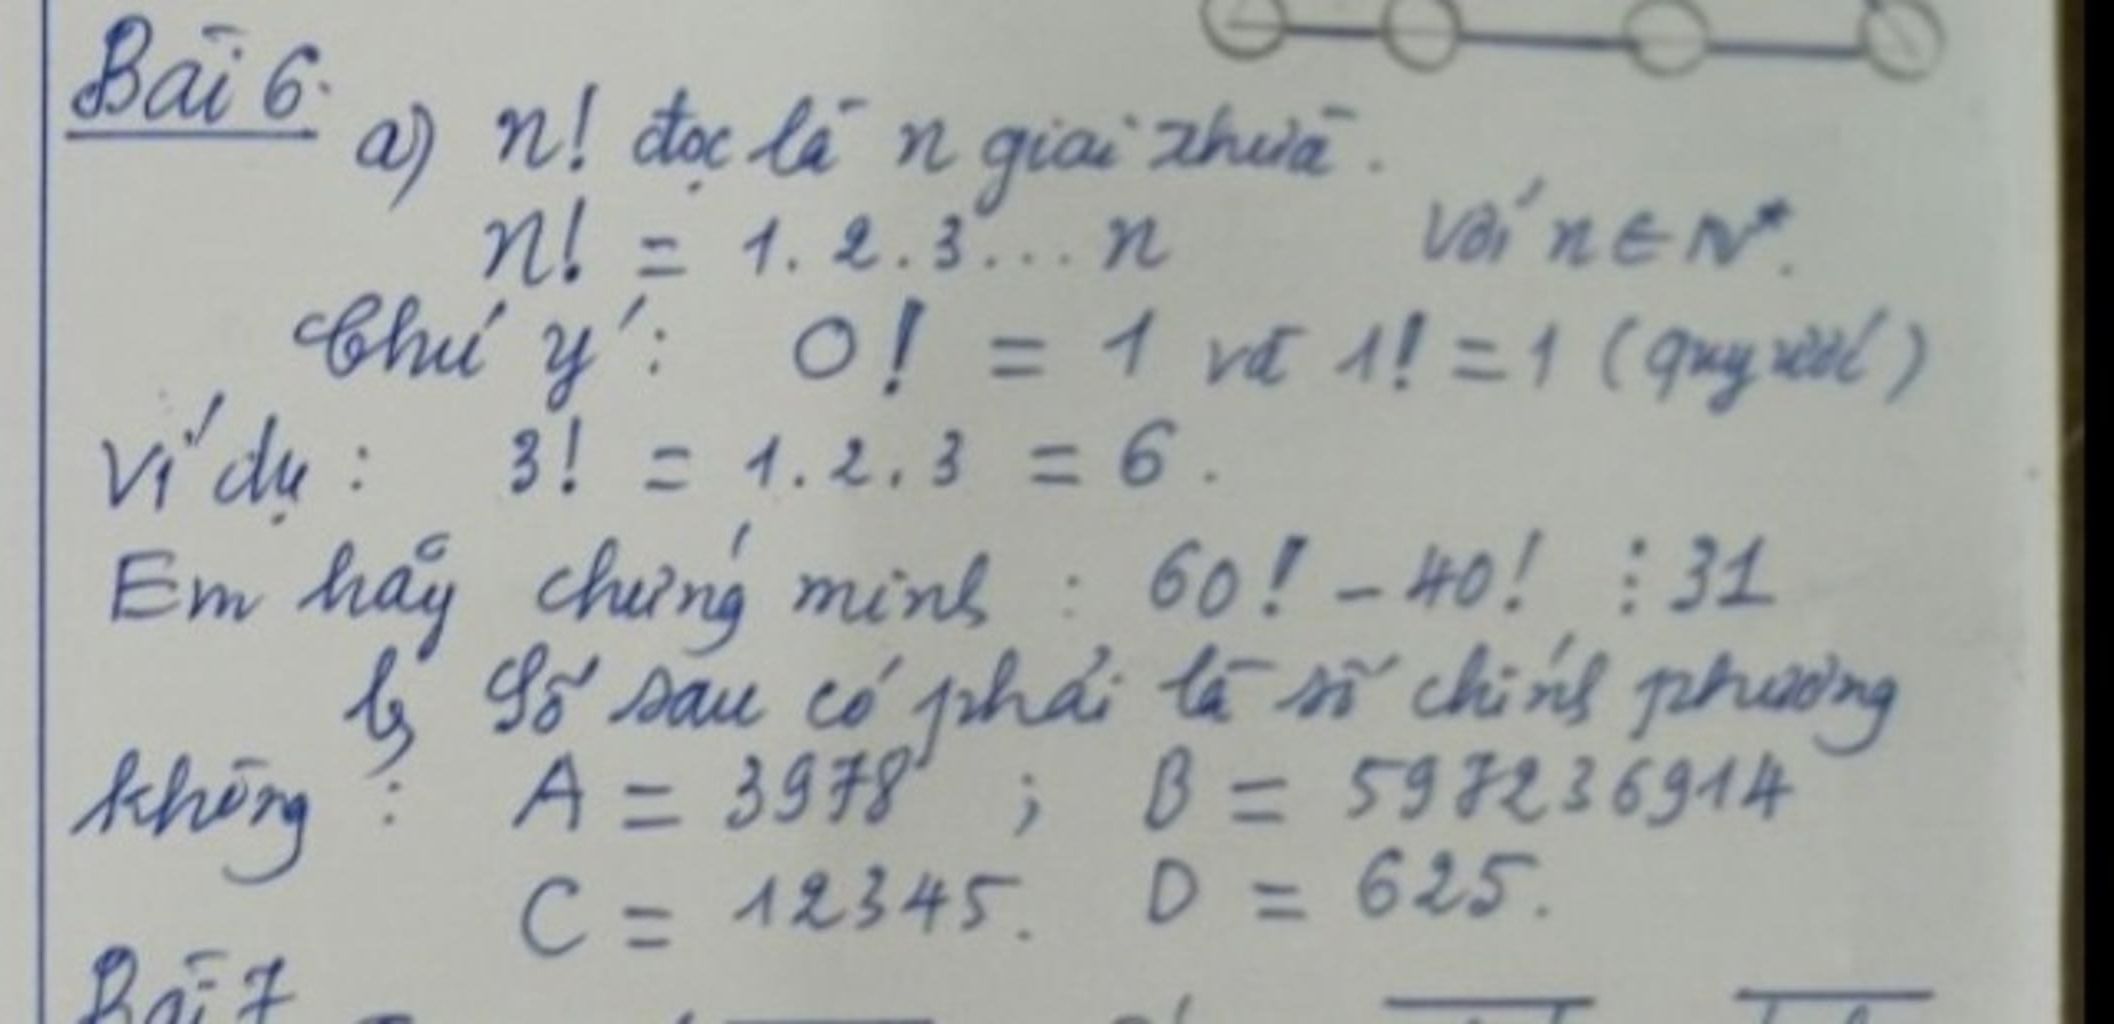 Bài 6.
a) n! đọc là n giai thừa.
n! = 1.2.3...n với n ∈ N*.
Chú ý: 0! = 1 và 1! = 1 (quy ước)
Ví dụ: 3! = 1.2.3 = 6.
Em hãy chứng minh: 60! - 40! ⋮ 31
b) Số sau có phải là số chính phương
không: A = 3978 ; B = 597236914
C = 12345. D = 625.
Bài 7